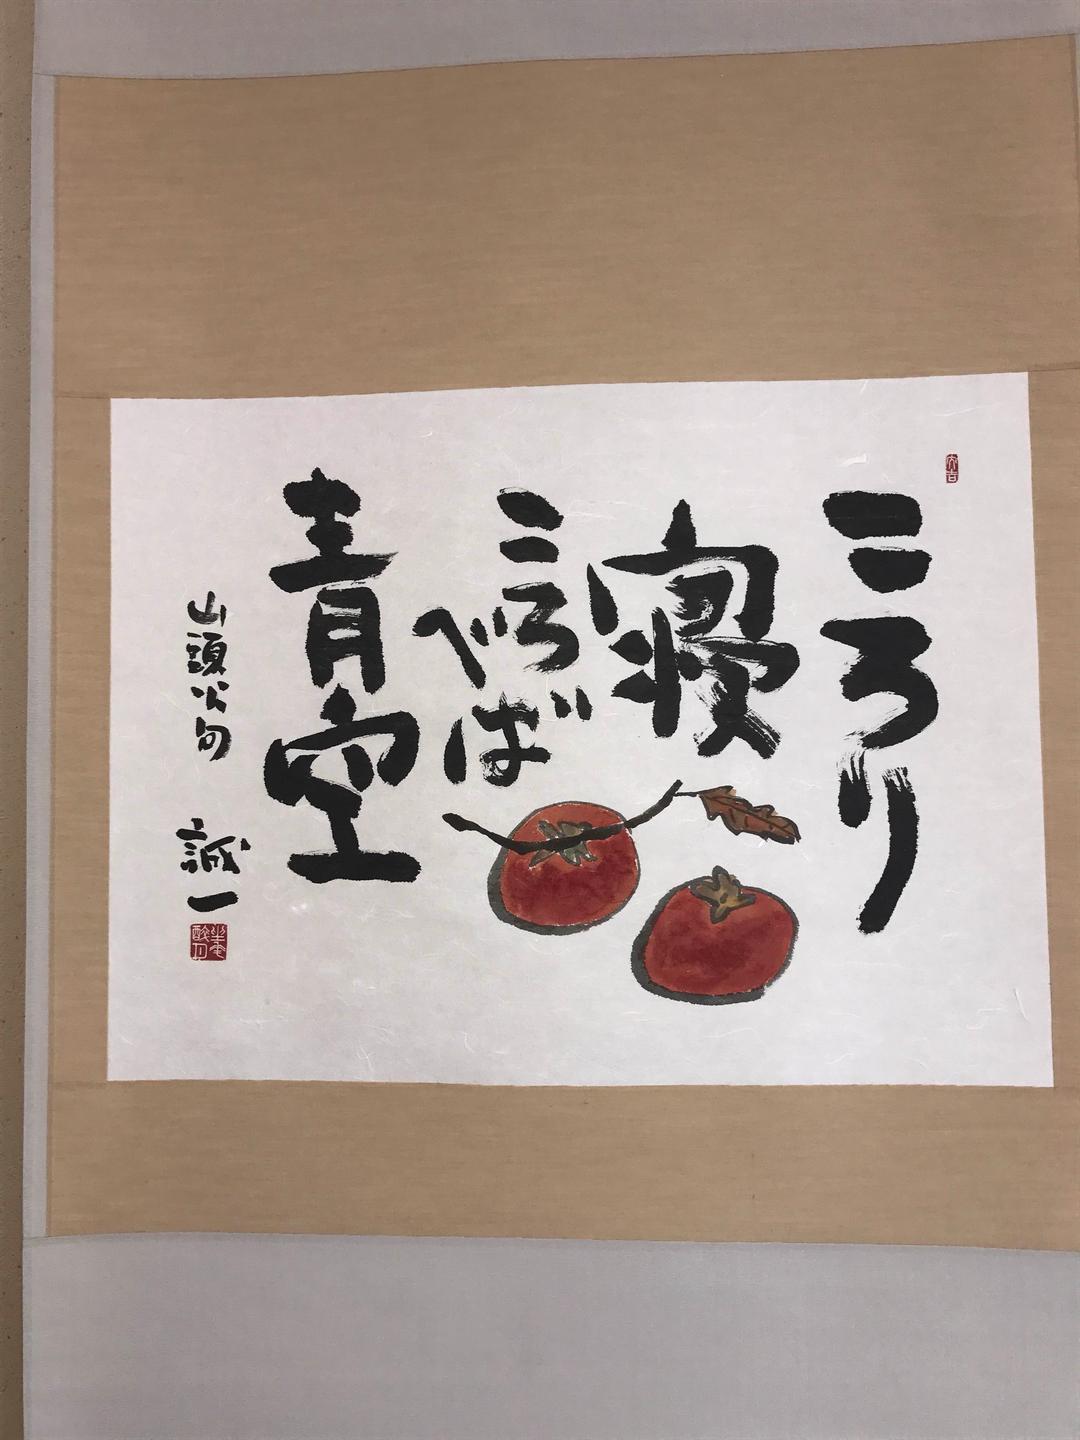 ころり
寝
ころ
べば
青空
山頭火句
誠一